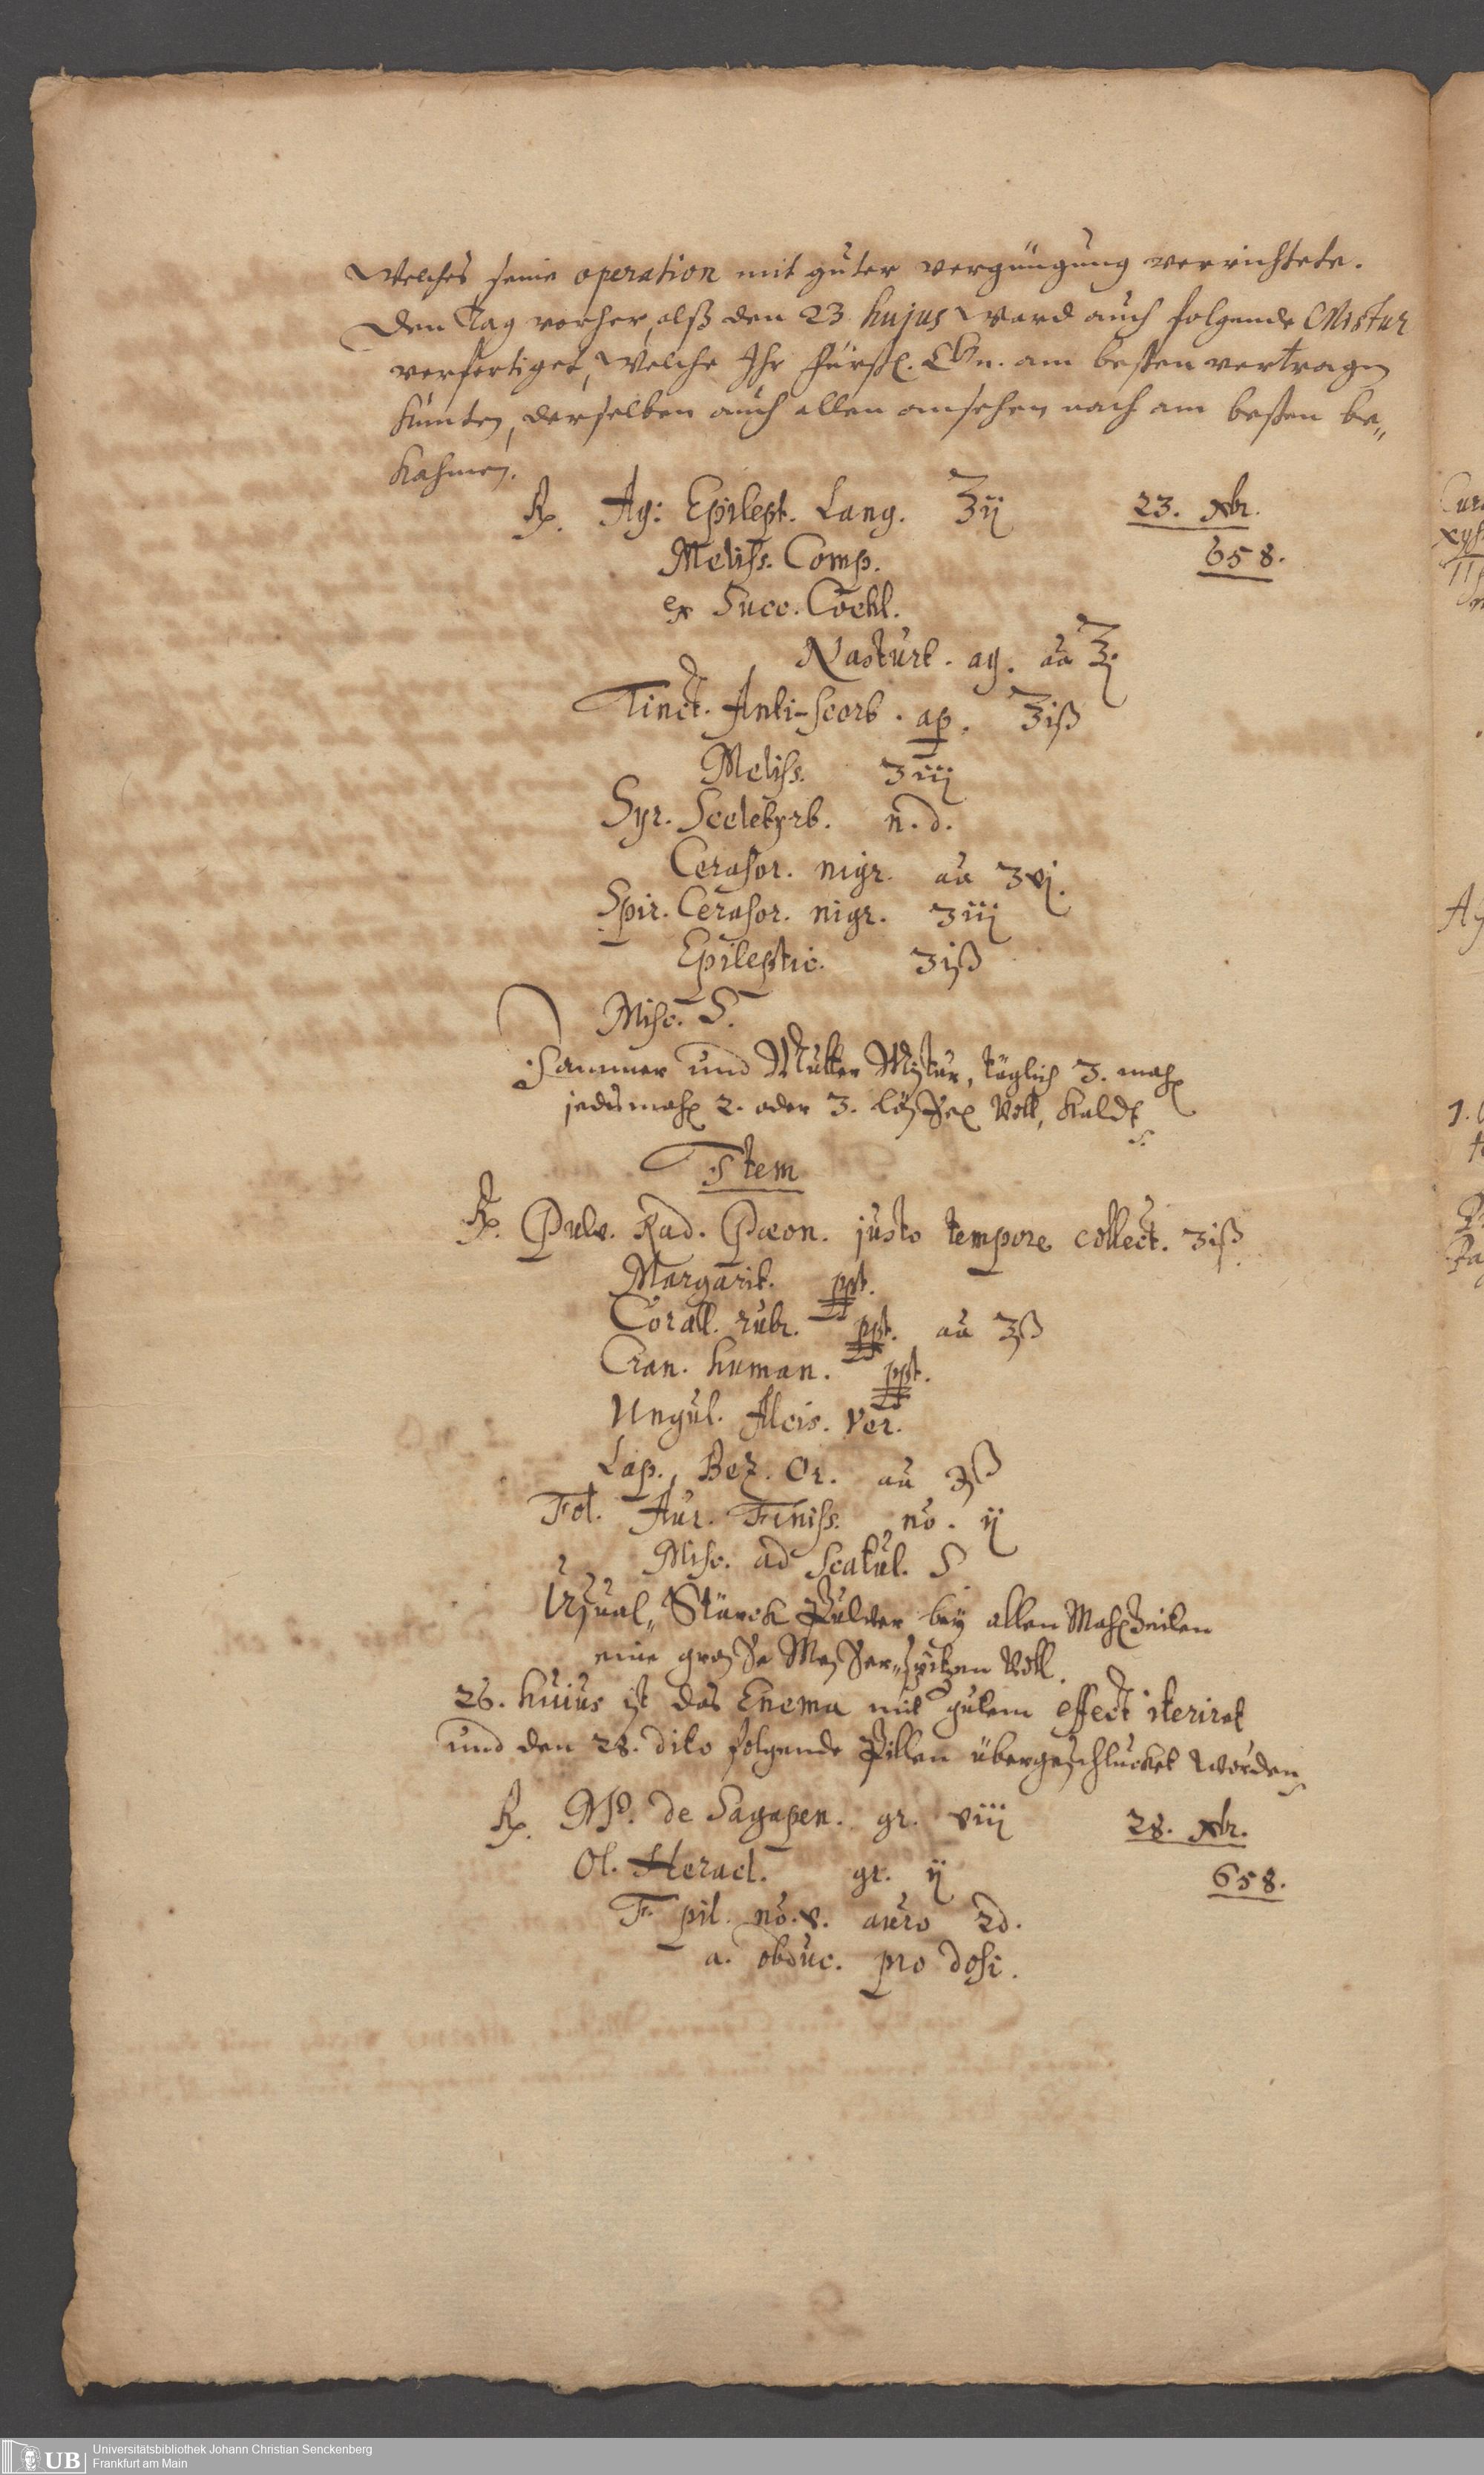 Welches seine operation mit guter vergnügung verrichtete.
Den Tag vorher, alß den 23 hujus ward auch folgende Mixtur
verfertiget, Welche Ihr Fürstl. Gdn. am besten vertragen
kunten, derselben auch allen ansehen nach am besten be„
kahmen.
℞. Aq: Epilept. Lang. ℥ij 23. Xbr.
Meliss. Comp. 658.
ex Succ. Cochl.
Nasturt. aq. aa ℥j
Tinct. Anti-scorb. ap. ℥iß
Meliss. ʒiij
Syr. Sceletyrb. n. d.
Cerasor. nigr. aa ʒvj.
Spir. Cerasor. nigr. ʒiij
Epileptic. ʒiß
Misc. S.
Jammer und Mutter Mixtur, täglich 3. mahl
jedesmahl 2. oder 3. Löffel Voll, Kaldt
Item
℞. Pulv. Rad. Pæon. justo tempore collect. ʒiß
Margarit. ppt.
Corall. rubr. ppt. aa ʒß
Cran. human. ppt.
Ungul. Alcis. Ver.
Lap. Bez. Or. aa ℈ß
Fol. Aur. Finiss. no. ij
Misc. ad Scatul. S
Stärck Pulver bey allen Mahlzeiten
eine grosse Messer„spitzen Voll.
26. huius ist das Enema mit gutem effect iteriret
und den 28. dito folgende Pillen übergeschlucket worden
℞. de Sagapen. gr. viii 28. Xbr.
Ol. Heracl. gr. ij 658.
F. pil. no. v. auro
a. obduc. pro dosi.
Cur
Universitätsbibliothek Johann Christian Senckenberg
UB Frankfurt am Main